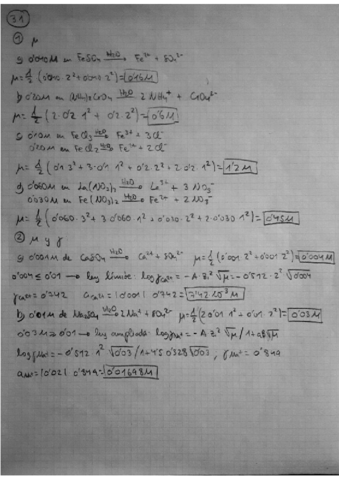 31
① μ
a) 0'040M en FeSO₄ →(H₂O) Fe²⁺ + SO₄²⁻
μ = ½ (0'040·2² + 0'040·2²) = 0'16M
b) 0'20M en (NH₄)₂CrO₄ →(H₂O) 2 NH₄⁺ + CrO₄²⁻
μ = ½ (2·0'2·1² + 0'2·2²) = 0'6M
c) 0'1M en FeCl₃ →(H₂O) Fe³⁺ + 3Cl⁻
0'2M en FeCl₂ →(H₂O) Fe²⁺ + 2Cl⁻
μ = ½ (0'1·3² + 3·0'1·1² + 0'2·2² + 2·0'2·1²) = 1'2M
d) 0'060M en La(NO₃)₃ →(H₂O) La³⁺ + 3 NO₃⁻
0'030M en Fe(NO₃)₂ →(H₂O) Fe²⁺ + 2 NO₃⁻
μ = ½ (0'060·3² + 3·0'060·1² + 0'030·2² + 2·0'030·1²) = 0'45M
② μ y γ
a) 0'001M de CaSO₄ →(H₂O) Ca²⁺ + SO₄²⁻ μ = ½ (0'001·2² + 0'001·2²) = 0'004M
0'004 ≤ 0'01 → ley límite: log γ = -A·Z²·√μ = -0'512·2²·√0'004
γ = 0'742 a = |0'001| 0'742 = 7'42·10⁻⁴M
b) 0'01M de Na₂SO₄ →(H₂O) 2Na⁺ + SO₄²⁻ μ = ½ (2·0'01·1² + 0'01·2²) = 0'03M
0'03 > 0'01 → ley ampliada: log γ = -A·Z²·√μ /
log γ = -0'512·1²·√0'03 / 1+4'5·0'328·√0'03, γ = 0'849
a = |0'02| 0'849 = 0'01698M